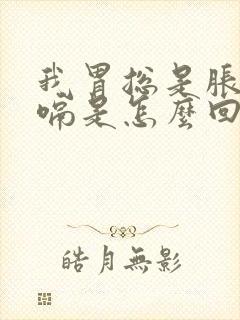 我胃总是脹
嗝是怎麼回
皓月無影